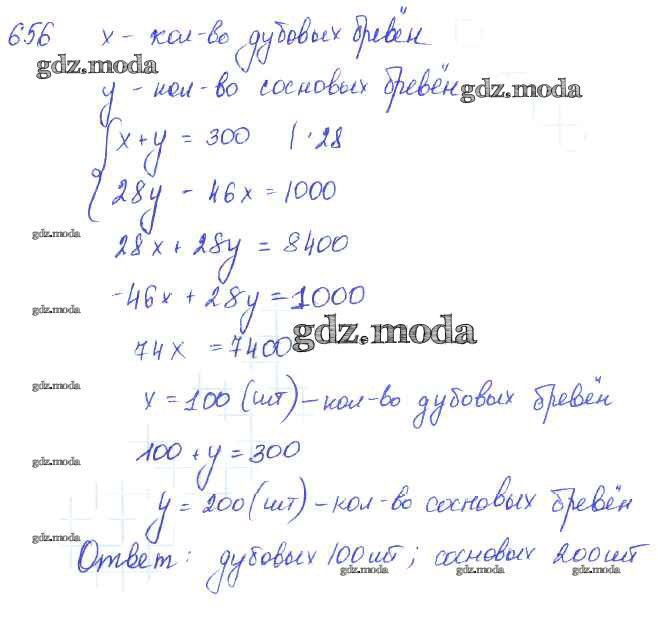 656 x - кол-во дубовых бревён
gdz.moda
y - кол-во сосновых бревён gdz.moda
x + y = 300 | · 28
28y - 46x = 1000
gdz.moda
28x + 28y = 8400
-46x + 28y = 1000
gdz.moda
gdz.moda
74x = 7400
gdz.moda
x = 100 (шт) - кол-во дубовых бревён
100 + y = 300
gdz.moda
y = 200 (шт) - кол-во сосновых бревён
gdz.moda
Ответ: дубовых 100 шт; сосновых 200 шт
gdz.moda gdz.moda gdz.moda